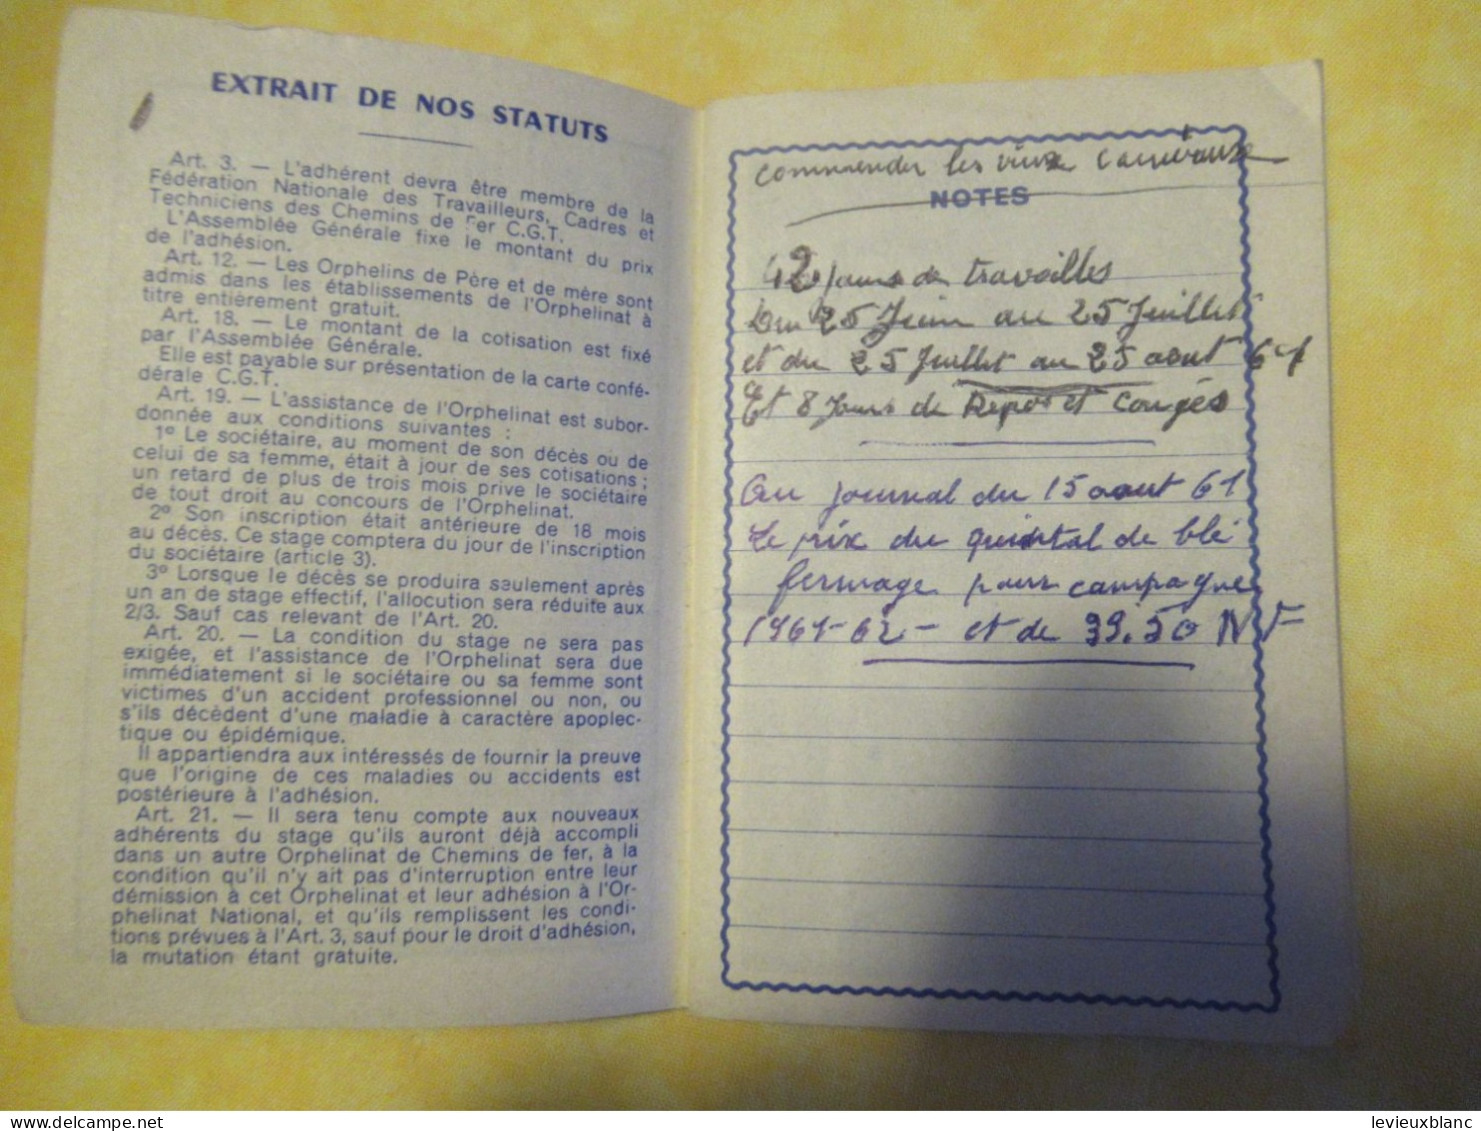 EXTRAIT DE NOS STATUTS
Art. 3. — L'adhérent devra être membre de la
Fédération Nationale des Travailleurs, Cadres et
Techniciens des Chemins de Fer C.G.T.
L'Assemblée Générale fixe le montant du prix
de l'adhésion.
Art. 12. — Les Orphelins de Père et de mère sont
admis dans les établissements de l'Orphelinat à
titre entièrement gratuit.
Art. 18. — Le montant de la cotisation est fixé
par l'Assemblée Générale.
Elle est payable sur présentation de la carte confé-
dérale C.G.T.
Art. 19. — L'assistance de l'Orphelinat est subor-
donnée aux conditions suivantes :
1º Le sociétaire, au moment de son décès ou de
celui de sa femme, était à jour de ses cotisations ;
un retard de plus de trois mois prive le sociétaire
de tout droit au concours de l'Orphelinat.
2º Son inscription était antérieure de 18 mois
au décès. Ce stage comptera du jour de l'inscription
du sociétaire (article 3).
3º Lorsque le décès se produira saulement après
un an de stage effectif, l'allocution sera réduite aux
2/3. Sauf cas relevant de l'Art. 20.
Art. 20. — La condition du stage ne sera pas
exigée, et l'assistance de l'Orphelinat sera due
immédiatement si le sociétaire ou sa femme sont
victimes d'un accident professionnel ou non, ou
s'ils décèdent d'une maladie à caractère apoplec-
tique ou épidémique.
Il appartiendra aux intéressés de fournir la preuve
que l'origine de ces maladies ou accidents est
postérieure à l'adhésion.
Art. 21. — Il sera tenu compte aux nouveaux
adhérents du stage qu'ils auront déjà accompli
dans un autre Orphelinat de Chemins de fer, à la
condition qu'il n'y ait pas d'interruption entre leur
démission à cet Orphelinat et leur adhésion à l'Or-
phelinat National, et qu'ils remplissent les condi-
tions prévues à l'Art. 3, sauf pour le droit d'adhésion,
la mutation étant gratuite.
commender les vieux
NOTES
42 jours de travailles
Du 25 Juin au 25 Juillet
et du 25 Juillet au 25 aout 61
Et 8 Jours de Repos et Congés
Au journal du 15 aout 61
Le prix du quintal de blé
fermage pour campagne
1961-62 - et de 39.50 NF
levieuxblanc / Delcampe.net